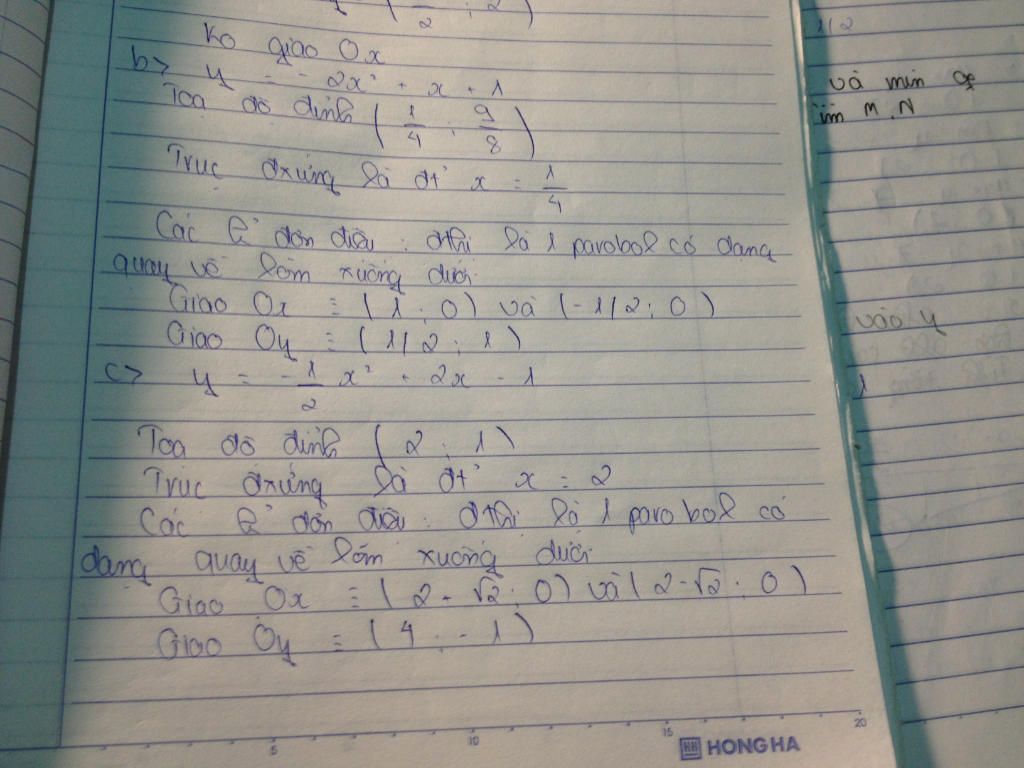 Ko giao Ox
b> y = - 2x² + x + 1
Toạ độ đỉnh ( 1/4 ; 9/8 )
Trục đxứng là đt² x = 1/4
Các k² đơn điệu : đthị là 1 parobol có dạng
quay về lõm xuống dưới
Giao Ox ≡ ( 1 ; 0 ) và ( -1/2 ; 0 )
Giao Oy ≡ ( 1/2 ; 1 )
c> y = - 1/2 x² + 2x - 1
Toạ độ đỉnh ( 2 ; 1 )
Trục đxứng là đt² x = 2
Các k² đơn điệu : đthị là 1 parobol có
dạng quay về lõm xuống dưới
Giao Ox ≡ ( 2 + √2 ; 0 ) và ( 2 - √2 ; 0 )
Giao Oy ≡ ( 4 ; - 1 )
5 10 15 20
HH HONG HA
1/2
và min
M, N
vào y
1